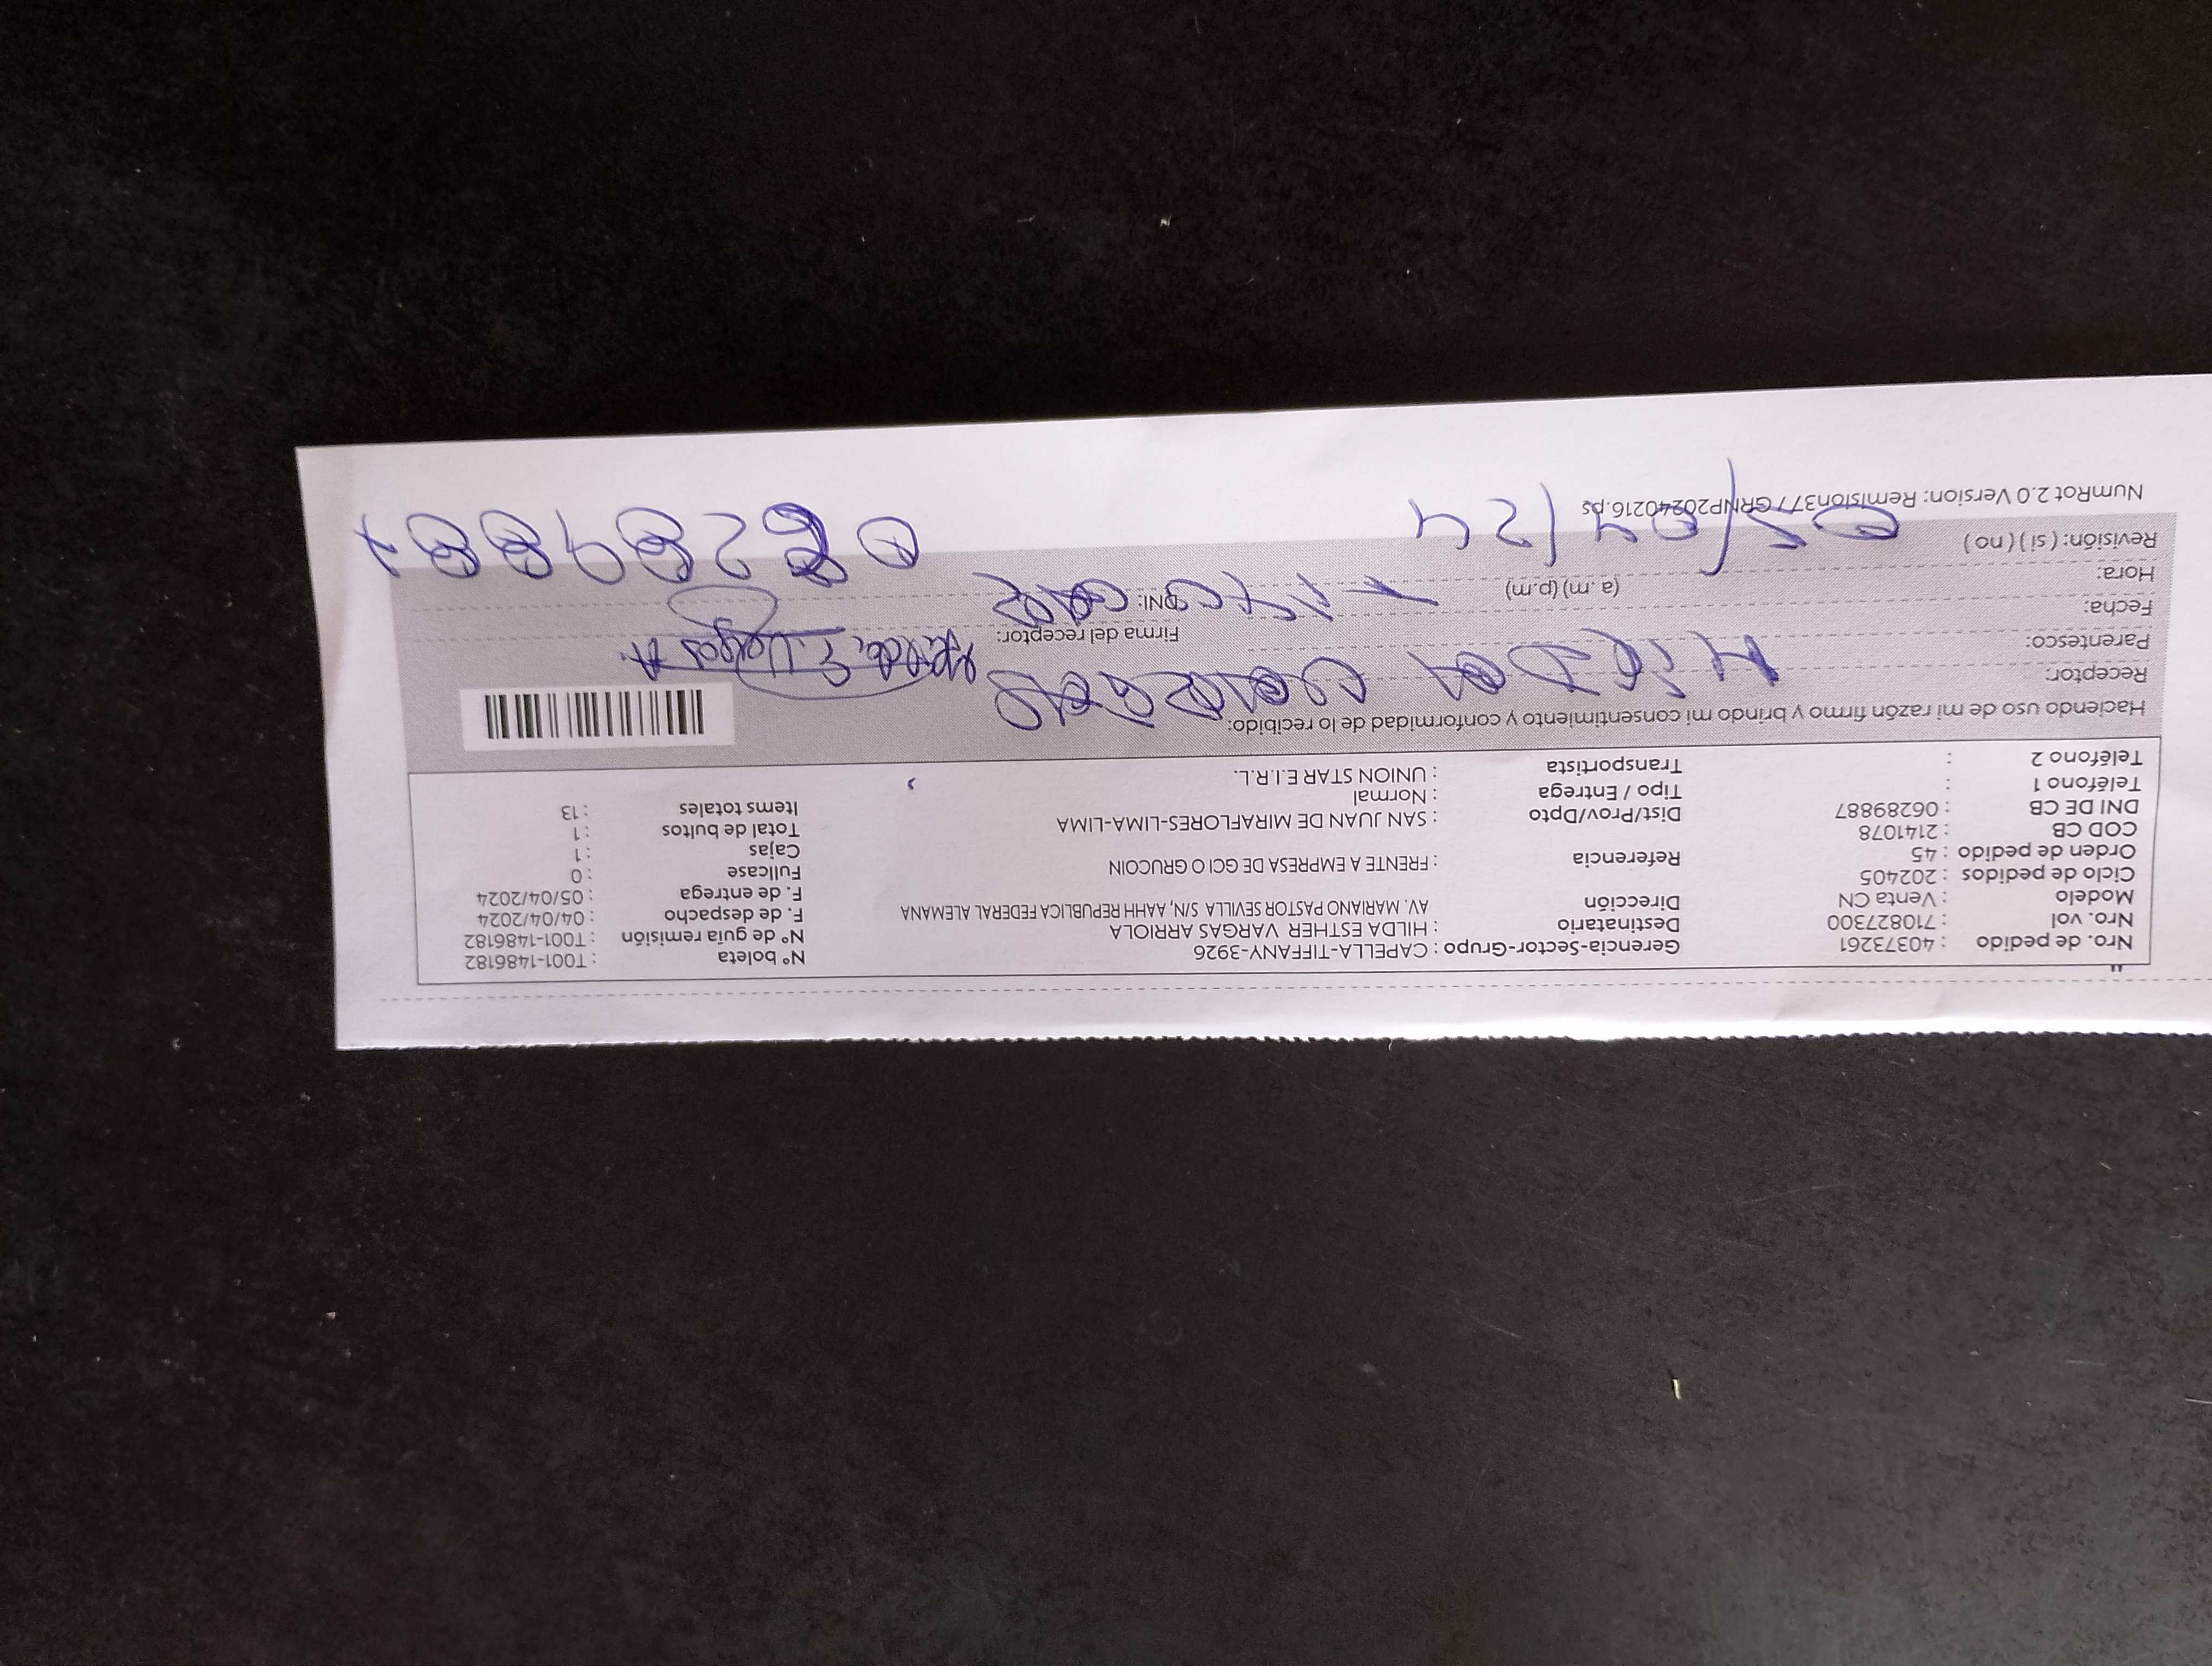 Nro. de pedido : 40373261 Gerencia-Sector-Grupo : CAPELLA-TIFFANY-3926 N° boleta : T001-1486182
Nro. vol : 710827300 Destinatario : HILDA ESTHER VARGAS ARRIOLA N° de guía remisión : T001-1486182
Modelo : Venta CN Dirección AV. MARIANO PASTOR SEVILLA S/N, AAHH REPUBLICA FEDERAL ALEMANA F. de despacho : 04/04/2024
Ciclo de pedidos : 202405 F. de entrega : 05/04/2024
Orden de pedido : 45 Referencia : FRENTE A EMPRESA DE GCI O GRUCOIN Fullcase : 0
COD CB : 2141078 Cajas : 1
DNI DE CB : 06289887 Dist/Prov/Dpto : SAN JUAN DE MIRAFLORES-LIMA-LIMA Total de bultos : 1
Teléfono 1 : Tipo / Entrega : Normal Items totales : 13
Teléfono 2 : Transportista : UNION STAR E.I.R.L.
Haciendo uso de mi razón firmo y brindo mi consentimiento y conformidad de lo recibido:
Receptor: HILDA
Parentesco: Firma del receptor: E. Vargas A.
Fecha: DNI:
Hora: (a. m) (p.m)
Revisión: ( si ) ( no ) 05/04/24
NumRot 2.0 Version: Remision377GRNP20240216.ps